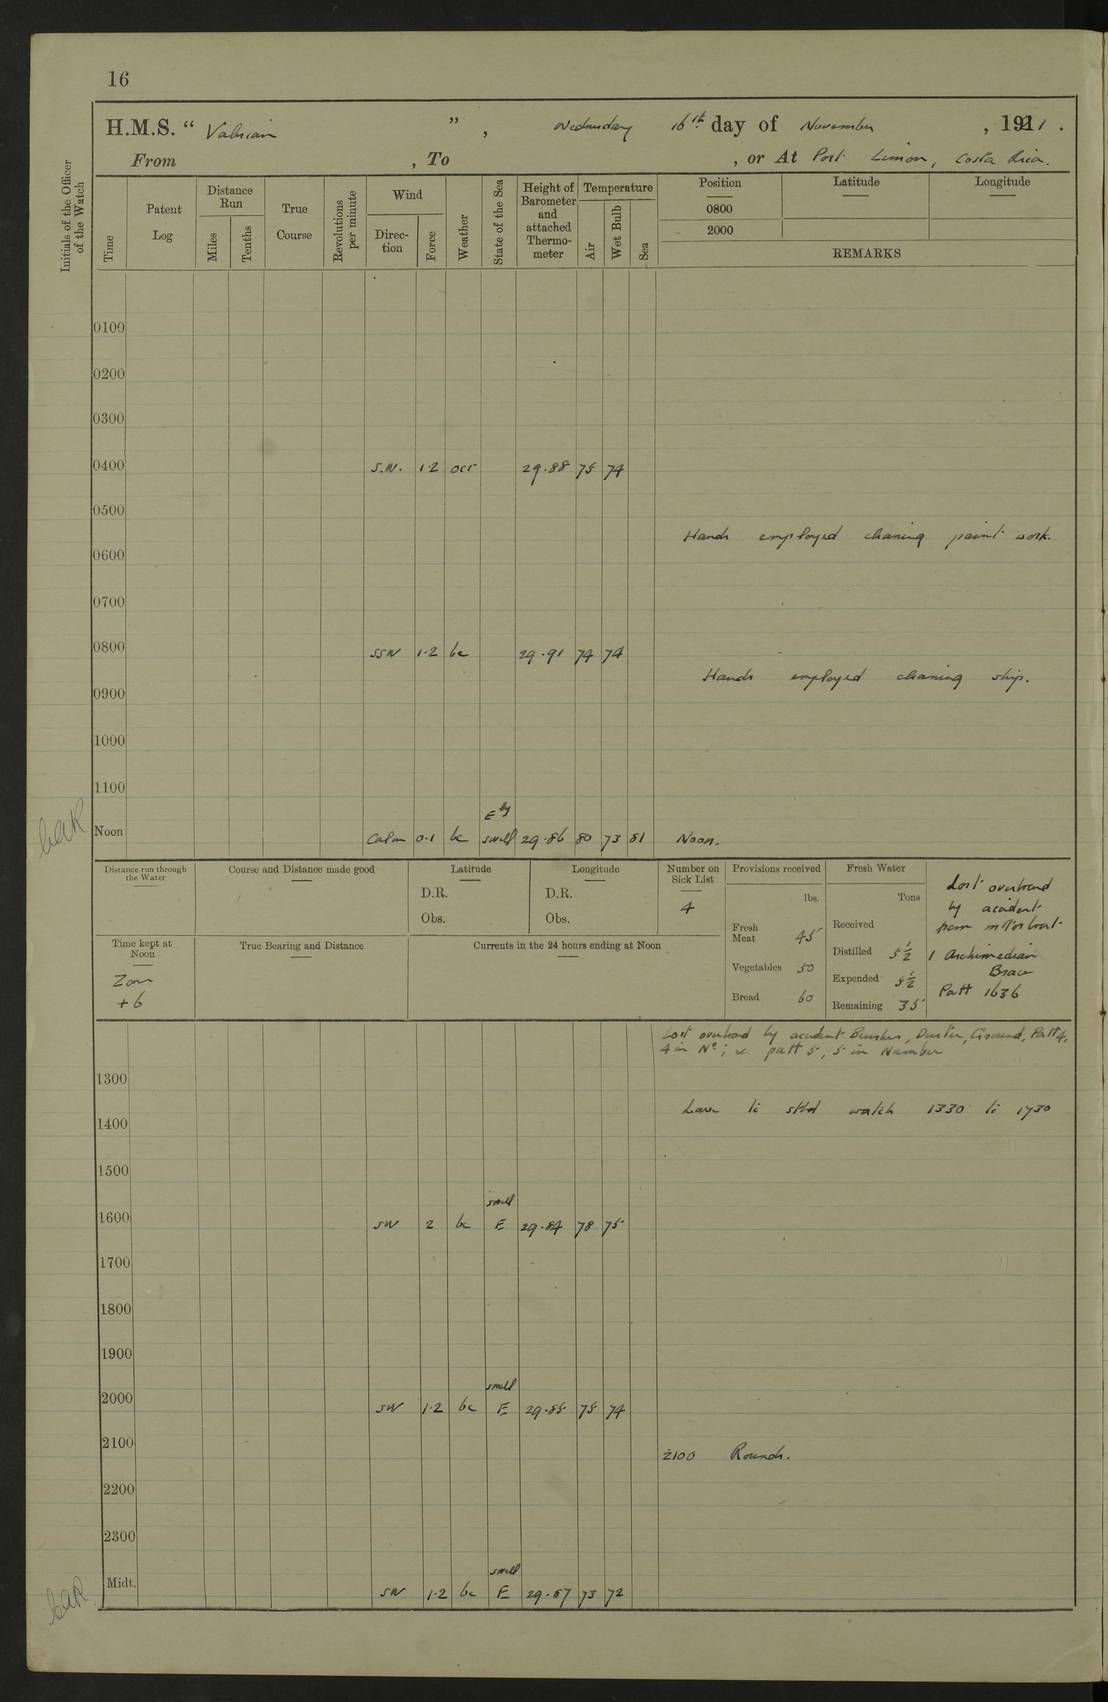 16
H.M.S. “ Valerian ” , Wednesday 16th day of November , 1921 .
From , To , or At Port Limon, Costa Rica.
Initials of the Officer of the Watch
Time
Patent Log
Distance Run
Miles
Tenths
True Course
Revolutions per minute
Wind
Direction
Force
Weather
State of the Sea
Height of Barometer and attached Thermometer
Temperature
Air
Wet Bulb
Sea
Position Latitude Longitude
0800
2000
REMARKS
0100
0200
0300
0400 S.W. 1·2 ocr 29·88 75 74
0500
Hands employed cleaning paint work.
0600
0700
0800 SSW 1·2 bc 29·91 74 74
Hands employed cleaning ship.
0900
1000
1100
Noon Calm 0·1 bc Ely small 29·86 80 73 81 Noon.
Distance run through the Water
Course and Distance made good
Latitude
D.R.
Obs.
Longitude
D.R.
Obs.
Number on Sick List
4
Provisions received
lbs.
Fresh Meat 45
Vegetables 50
Bread 60
Fresh Water
Tons
Received
Distilled 5½
Expended 5½
Remaining 35
Lost overboard
by accident
from motor boat
1 Archimedian
Brace
Patt 1636
Time kept at Noon
Zone
+6
True Bearing and Distance
Currents in the 24 hours ending at Noon
Lost overboard by accident Brushes, Duster, Ground, Patt 4,
4 in No; & patt 5, 5 in Number
1300
Leave to stbd watch 1330 to 1730
1400
1500
1600 SW 2 bc small E 29·84 78 75
1700
1800
1900
2000 SW 1·2 bc small E 29·85 75 74
2100
2100 Rounds.
2200
2300
Midt. SW 1·2 bc small E 29·87 73 72